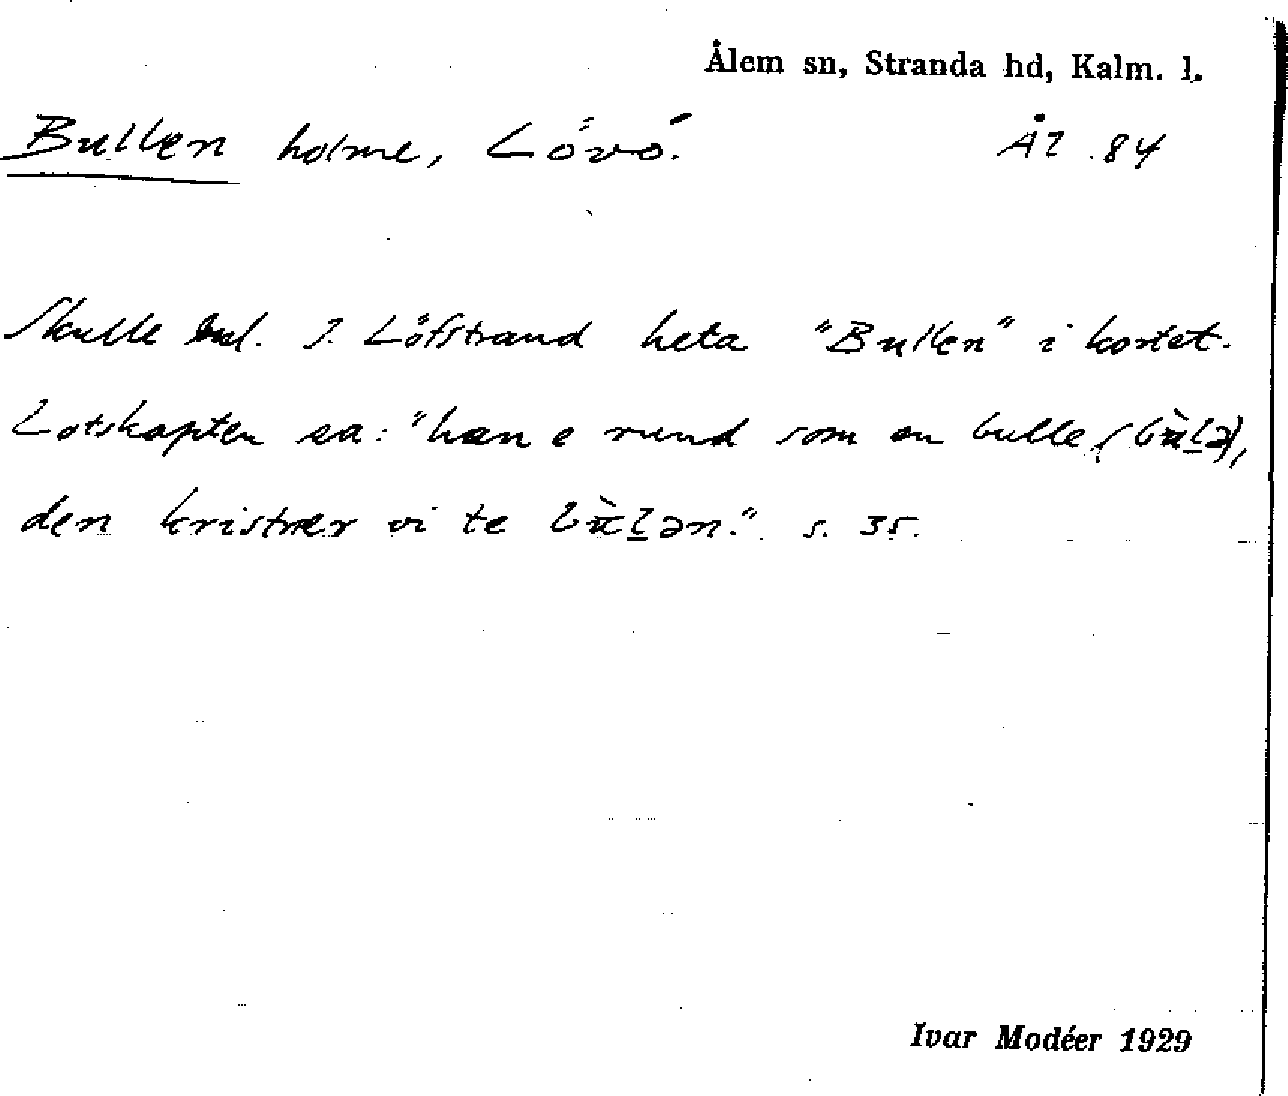 Ålem sn, Stranda hd, Kalm. l.
Bullen holme, Lövö. Ål. 84
Skulle enl. J. Löfstrand heta "Bullen" i kortet.
Lotskapten sa: "han e rund som en bulle (bùlə),
den kristnar vi te bùlən." s. 35.
Ivar Modéer 1929